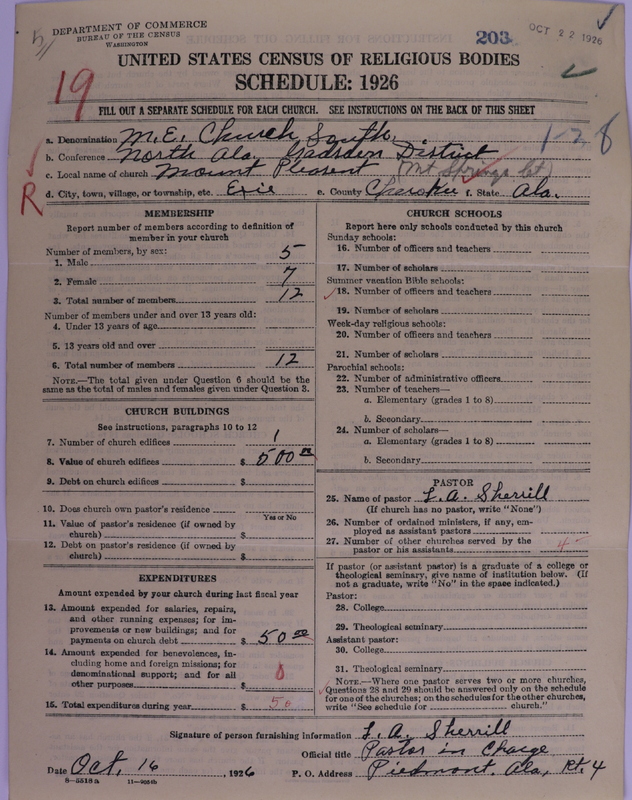 DEPARTMENT OF COMMERCE
BUREAU OF THE CENSUS
WASHINGTON
203
OCT 22 1926
UNITED STATES CENSUS OF RELIGIOUS BODIES
SCHEDULE: 1926
19
FILL OUT A SEPARATE SCHEDULE FOR EACH CHURCH. SEE INSTRUCTIONS ON THE BACK OF THIS SHEET
a. Denomination M.E. Church, South. 1-28
b. Conference North Ala. Gadsden District
c. Local name of church Mount Pleasent (Mt Springs Ct)
R
d. City, town, village, or township, etc. Exie e. County Cherokee f. State Ala.
MEMBERSHIP
Report number of members according to definition of
member in your church
Number of members, by sex:
1. Male 5
2. Female 7
3. Total number of members 12
Number of members under and over 13 years old:
4. Under 13 years of age
5. 13 years old and over
6. Total number of members 12
NOTE.—The total given under Question 6 should be the
same as the total of males and females given under Question 3.
CHURCH BUILDINGS
See instructions, paragraphs 10 to 12
7. Number of church edifices 1
8. Value of church edifices $ 500 00
9. Debt on church edifices $
10. Does church own pastor's residence
Yes or No
11. Value of pastor's residence (if owned by
church) $
12. Debt on pastor's residence (if owned by
church) $
EXPENDITURES
Amount expended by your church during last fiscal year
13. Amount expended for salaries, repairs,
and other running expenses; for im-
provements or new buildings; and for
payments on church debt $ 50 00
14. Amount expended for benevolences, in-
cluding home and foreign missions; for
denominational support; and for all
other purposes $ 0
15. Total expenditures during year $ 50
CHURCH SCHOOLS
Report here only schools conducted by this church
Sunday schools:
16. Number of officers and teachers
17. Number of scholars
Summer vacation Bible schools:
18. Number of officers and teachers
19. Number of scholars
Week-day religious schools:
20. Number of officers and teachers
21. Number of scholars
Parochial schools:
22. Number of administrative officers
23. Number of teachers—
a. Elementary (grades 1 to 8)
b. Secondary
24. Number of scholars—
a. Elementary (grades 1 to 8)
b. Secondary
PASTOR
25. Name of pastor L. A. Sherrill
(If church has no pastor, write "None")
26. Number of ordained ministers, if any, em-
ployed as assistant pastors
27. Number of other churches served by the
pastor or his assistants 4
If pastor (or assistant pastor) is a graduate of a college or
theological seminary, give name of institution below. (If
not a graduate, write "No" in the space indicated.)
Pastor:
28. College
29. Theological seminary
Assistant pastor:
30. College
31. Theological seminary
NOTE.—Where one pastor serves two or more churches,
Questions 28 and 29 should be answered only on the schedule
for one of the churches; on the schedules for the other churches,
write "See schedule for church."
Signature of person furnishing information L. A. Sherrill
Official title Pastor in Charge
Date Oct. 16, 1926 P. O. Address Piedmont, Ala, Rt. 4
8—5518 a